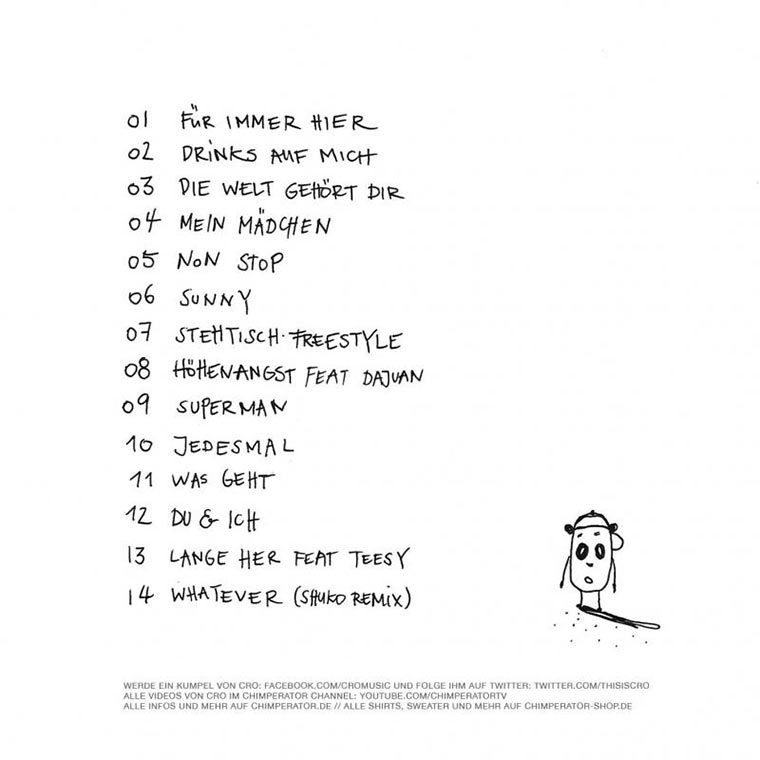 01 FÜR IMMER HIER
02 DRINKS AUF MICH
03 DIE WELT GEHÖRT DIR
04 MEIN MÄDCHEN
05 NON STOP
06 SUNNY
07 STEHTISCH-FREESTYLE
08 HÖHENANGST FEAT DAJUAN
09 SUPERMAN
10 JEDESMAL
11 WAS GEHT
12 DU & ICH
13 LANGE HER FEAT TEESY
14 WHATEVER (SHUKO REMIX)
WERDE EIN KUMPEL VON CRO: FACEBOOK.COM/CROMUSIC UND FOLGE IHM AUF TWITTER: TWITTER.COM/THISISCRO
ALLE VIDEOS VON CRO IM CHIMPERATOR CHANNEL: YOUTUBE.COM/CHIMPERATORTV
ALLE INFOS UND MEHR AUF CHIMPERATOR.DE // ALLE SHIRTS, SWEATER UND MEHR AUF CHIMPERATOR-SHOP.DE